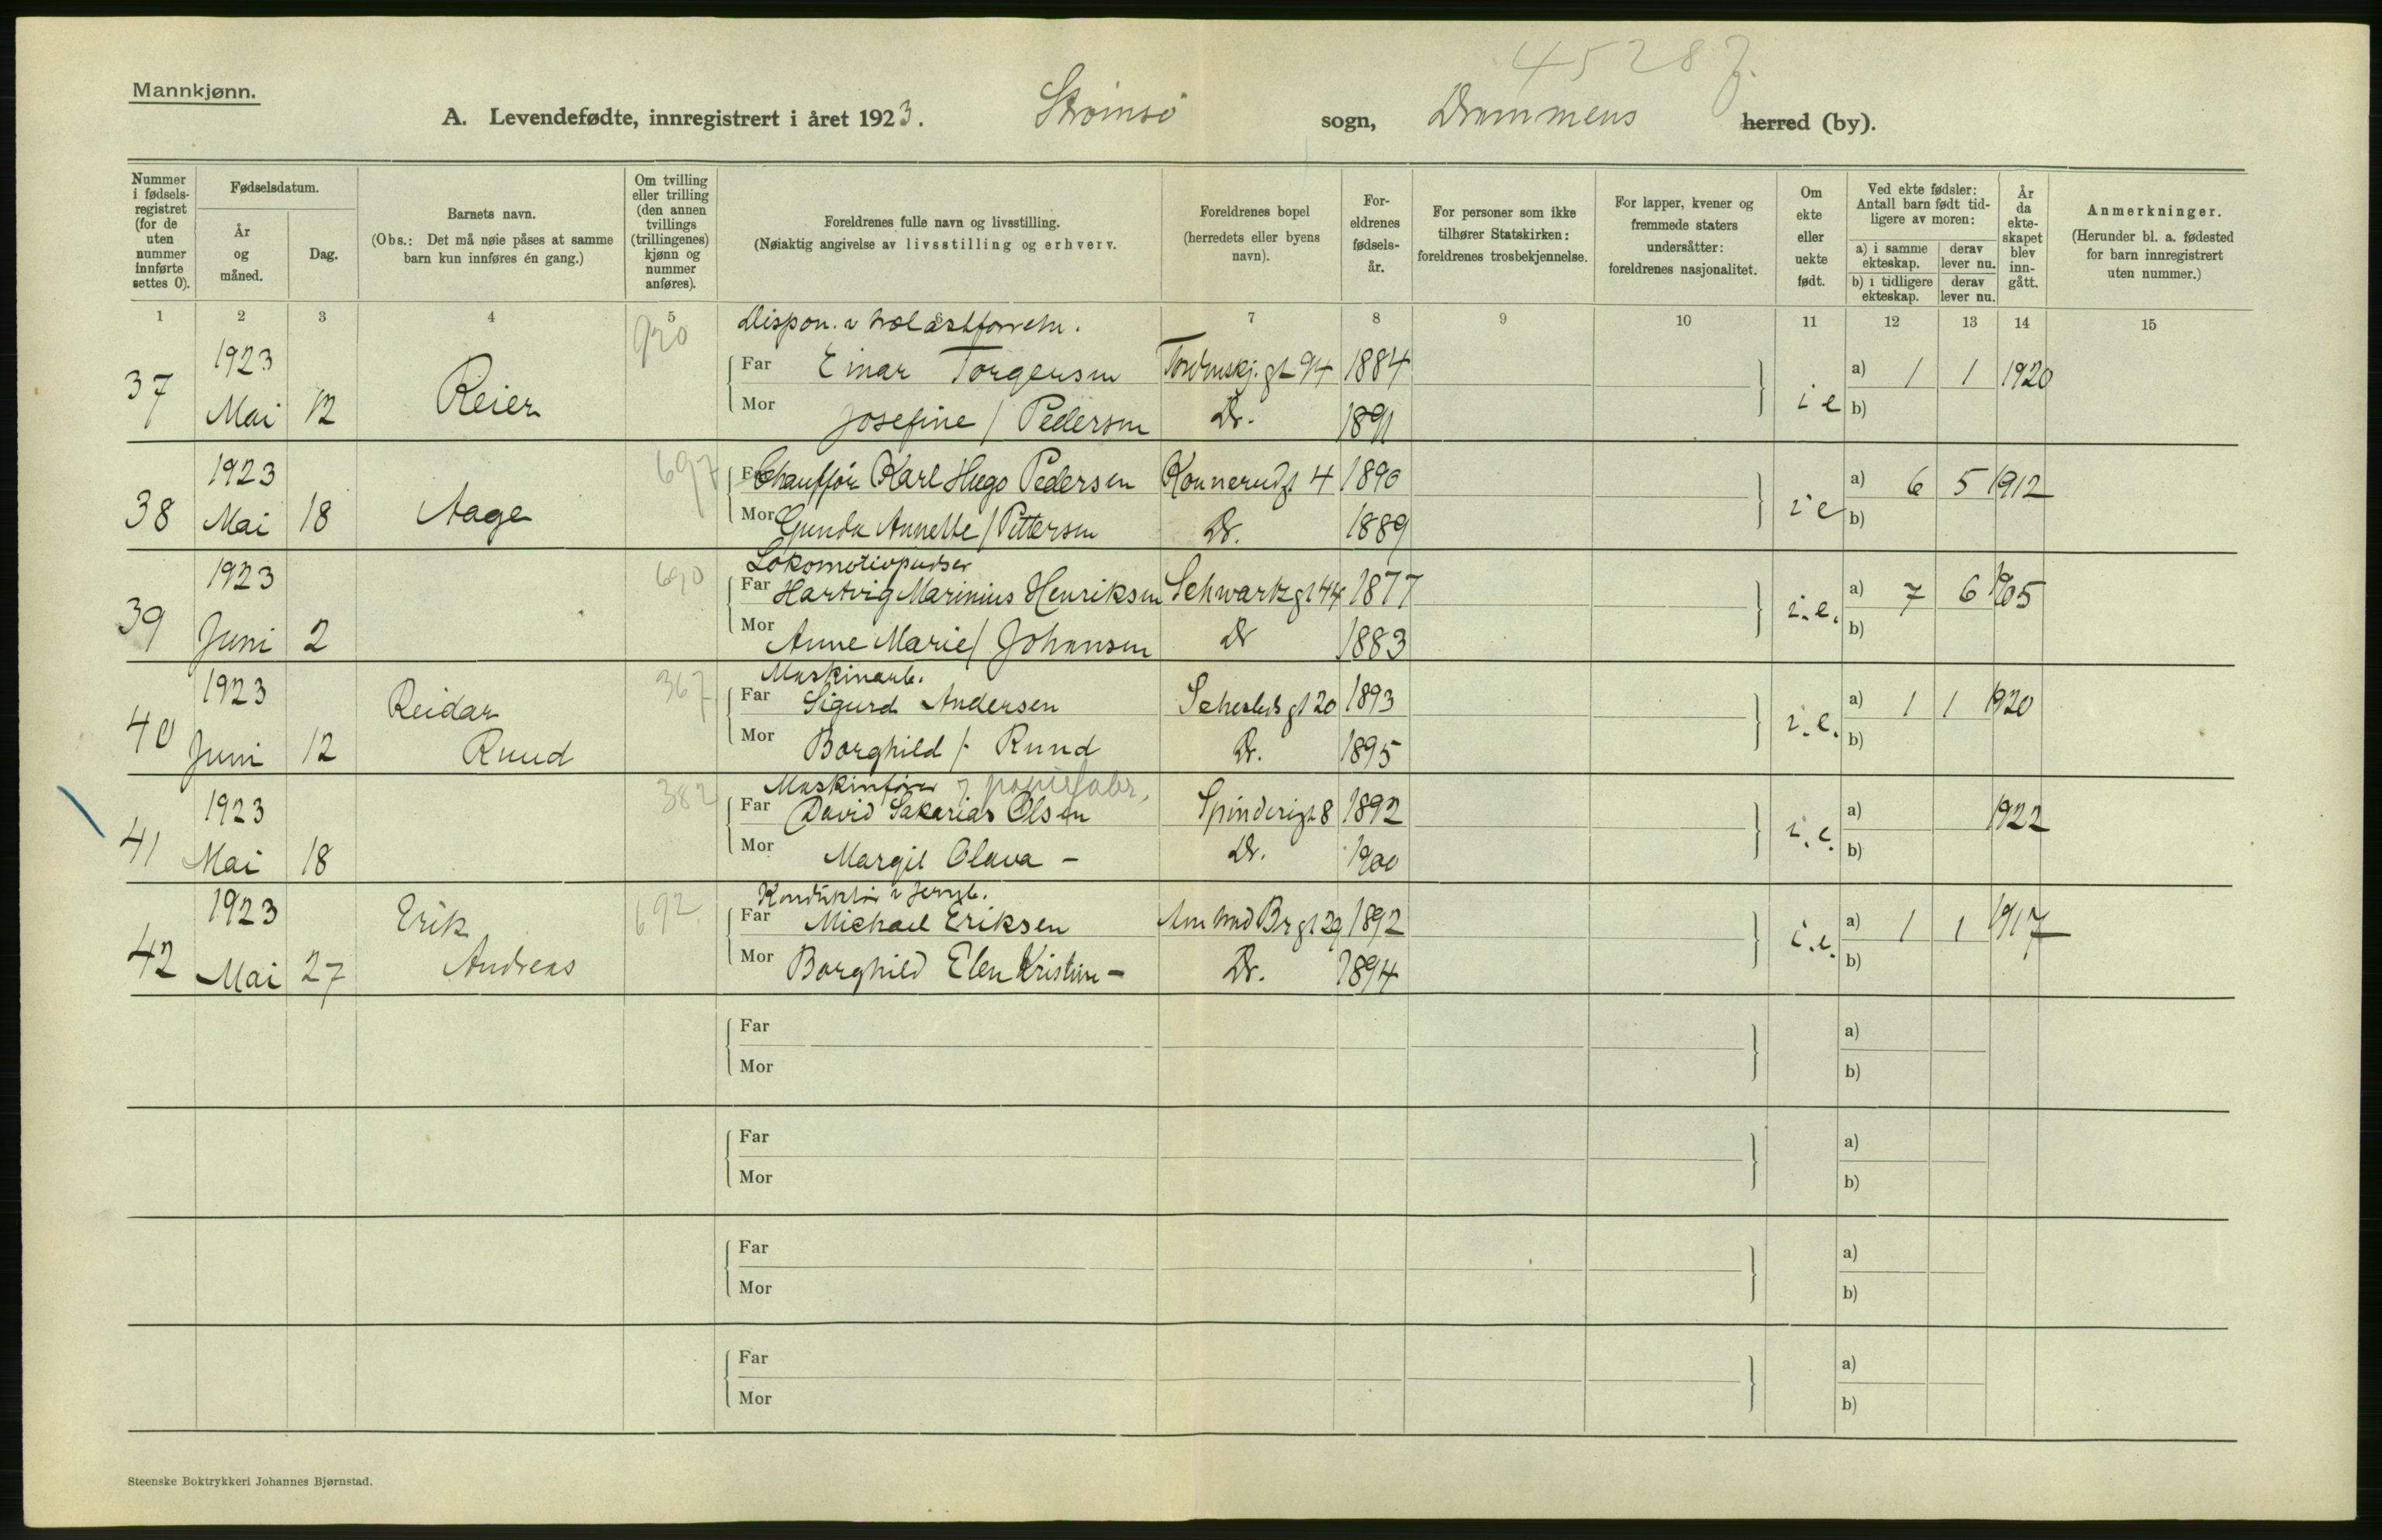 45287.
Mannkjønn.
A. Levendefødte, innregistrert i året 1923. Strömsö sogn, Drammens herred (by).
Nummer i fødsels-registret (for de uten nummer innførte settes 0).
Fødselsdatum.
År og måned.
Dag.
Barnets navn.
(Obs.: Det må nøie påses at samme barn kun innføres én gang.)
Om tvilling eller trilling (den annen tvillings (trillingenes) kjønn og nummer anføres).
Foreldrenes fulle navn og livsstilling.
(Nøiaktig angivelse av livsstilling og erhverv.
Foreldrenes bopel (herredets eller byens navn).
For-eldrenes fødsels-år.
For personer som ikke tilhører Statskirken: foreldrenes trosbekjennelse.
For lapper, kvener og fremmede staters undersåtter: foreldrenes nasjonalitet.
Om ekte eller uekte født.
Ved ekte fødsler: Antall barn født tid-ligere av moren:
a) i samme ekteskap.
derav lever nu.
b) i tidligere ekteskap.
derav lever nu.
År da ekte-skapet blev inn-gått.
Anmerkninger.
(Herunder bl. a. fødested for barn innregistrert uten nummer.)
1 2 3 4 5 6 7 8 9 10 11 12 13 14 15
920 Dispon.
37 1923 Mai 12 Reier
Far Einar Torgersen 1884 i e a) 1 1 1920
Mor Josefine / Pedersen Dr. 1891 b)
697
38 1923 Mai 18 Aage
Far Chaufför Karl Hugo Pedersen Konnerudgt 4 1890 i e a) 6 5 1912
Mor Gunda Annette / Pettersen Dr. 1889 b)
690 Lokomotivpudser
39 1923 Juni 2
Far Hartvig Marinius Henriksen Schwartzgt 44 1877 i.e. a) 7 6 1905
Mor Anne Marie / Johansen Dr 1883 b)
367 Maskinarb.
40 1923 Juni 12 Reidar Ruud
Far Sigurd Andersen gt 20 1893 i.e. a) 1 1 1920
Mor Borghild / Ruud Dr. 1895 b)
382 Maskinfører papirfabr.
41 1923 Mai 18
Far David Sakarias Olsen Spinderigt 8 1892 i.e. a) 1922
Mor Margit Olava - Dr. 1900 b)
692 Konduktör v Jernb.
42 1923 Mai 27 Erik Andreas
Far Michael Eriksen gt 29 1892 i.e. a) 1 1 1917
Mor Borghild Elen Kristine - Dr. 1894 b)
Far a)
Mor b)
Far a)
Mor b)
Far a)
Mor b)
Far a)
Mor b)
Steenske Boktrykkeri Johannes Bjørnstad.